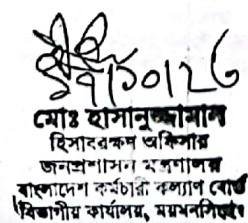 ৭/১০/২৫
মোঃ হাসানুজ্জামান
হিসাবরক্ষণ অফিসার
জনপ্রশাসন মন্ত্রণালয়
বাংলাদেশ কর্মচারী কল্যাণ বোর্ড
বিভাগীয় কার্যালয়, ময়মনসিংহ।